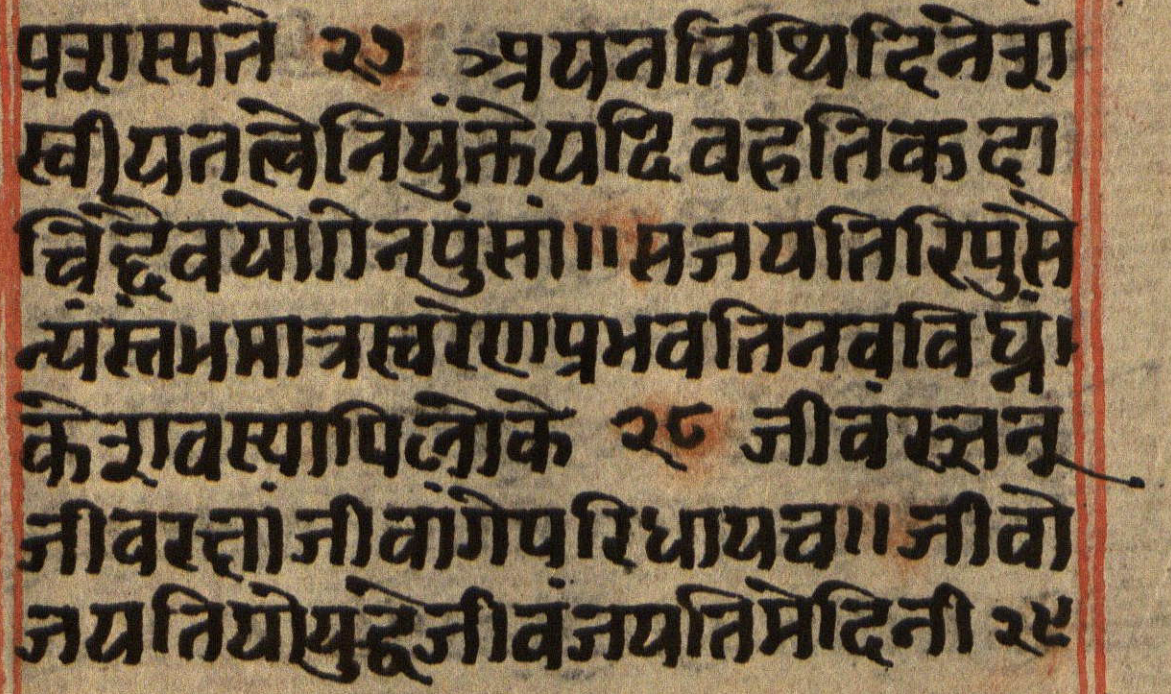 प्रशस्यते २७ अयनतिथिदिनेशा
स्वीयतत्वेनियुक्तेयदिवहतिकदा
चिद्दैवयोगेनपुंसां॥सजयतिरिपुसै
न्यंस्तंभमात्रस्वरेणप्रभवतिनवविघ्नं
केशवस्यापिलोके २८ जीवंरक्षन्
जीवरक्षां जीवांगेपरिधायच॥जीवो
जयतियोयुद्धेजीवंजयतिमेदिनी २९